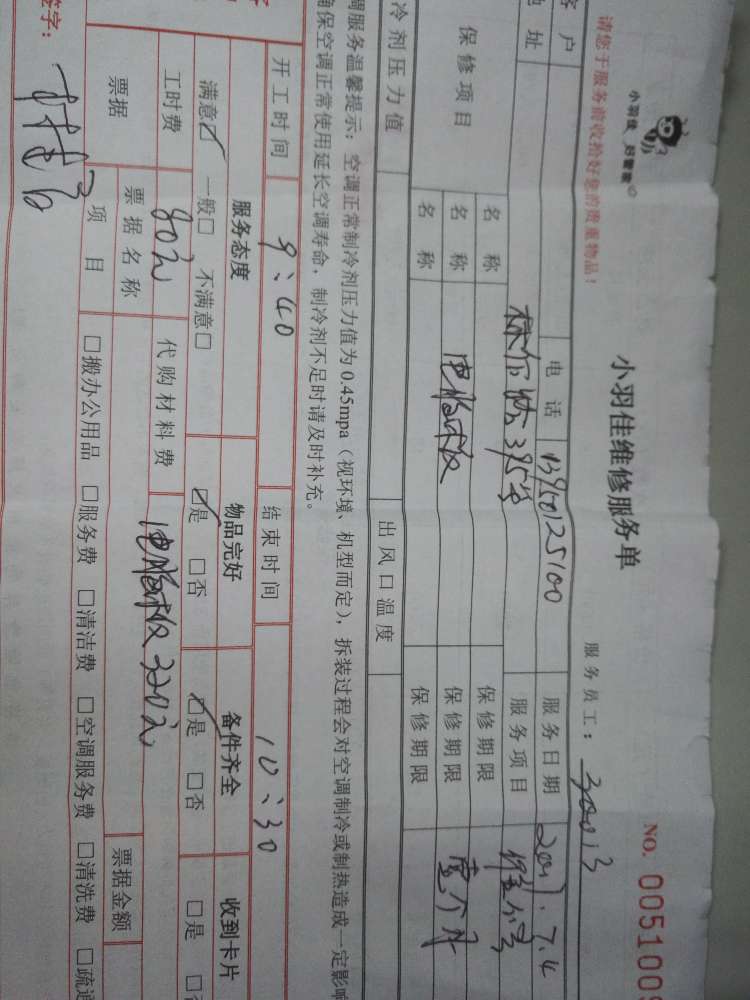 小羽佳 好管家
请您于服务前收拾好您的贵重物品！
小羽佳维修服务单
服务员工：30013
NO. 005100
客户 电话 13950125100 服务日期 2017.7.4
地址 395号 服务项目
保修项目 名称 保修期限
名称 电脑板 保修期限 壹个月
名称 保修期限
冷剂压力值 出风口温度
调服务温馨提示：空调正常制冷剂压力值为0.45mpa（视环境、机型而定），拆装过程会对空调制冷或制热造成一定影响
确保空调正常使用延长空调寿命，制冷剂不足时请及时补充。
开工时间 9:40 结束时间 10:30
服务态度 物品完好 备件齐全 收到卡片
满意☑ 一般□ 不满意□ ☑是 □否 ☑是 □否 □是
工时费 80元 代购材料费 电脑板320元
票据 票据名称 票据金额
项目 □搬办公用品 □服务费 □清洁费 □空调服务费 □清洗费 □疏通
签字：